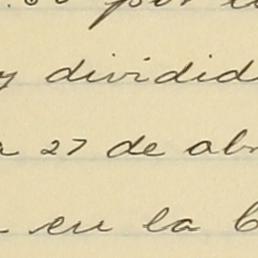 por
y dividid
27 de abr
en la